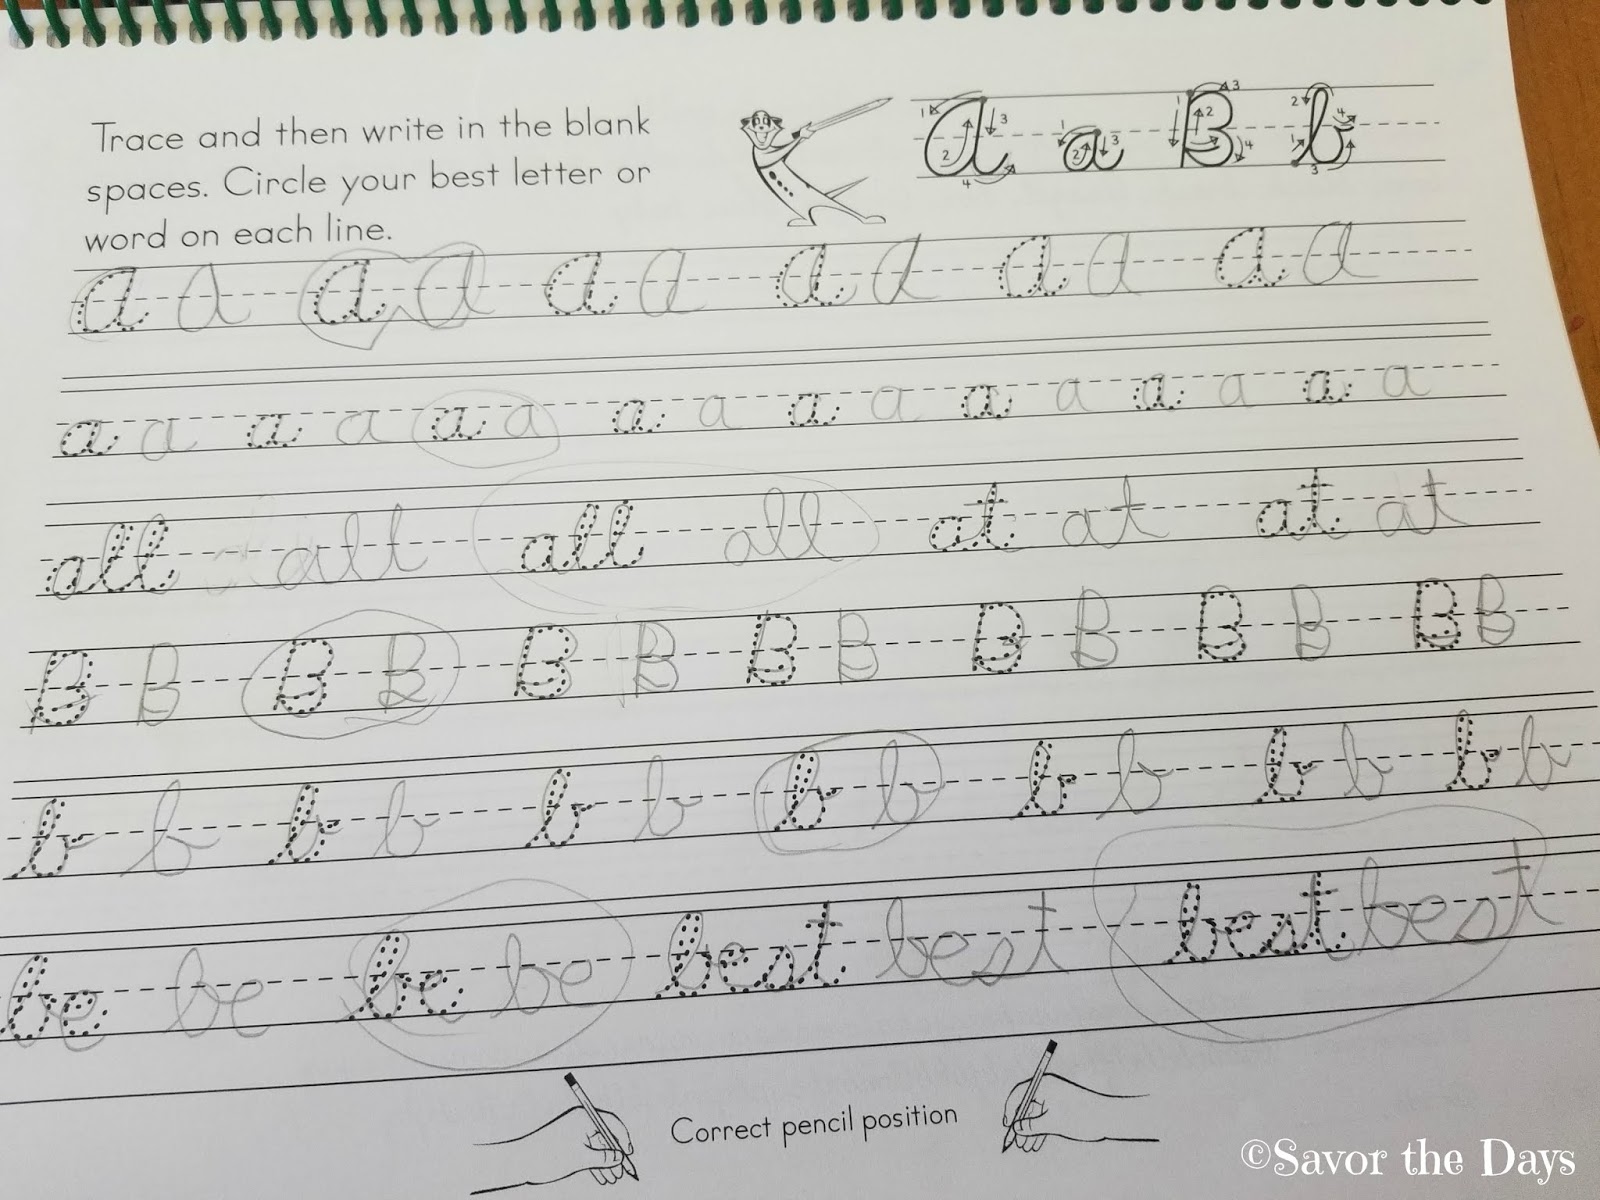 Trace and then write in the blank
spaces. Circle your best letter or
word on each line.
A a B b
A A A A A A A A A A A A
a a a a a a a a a a a a a a a a
all all all all at at at at
B B B B B B B B B B B B B B
b b b b b b b b b b b b b b
be be be be best best best best
Correct pencil position
©Savor the Days